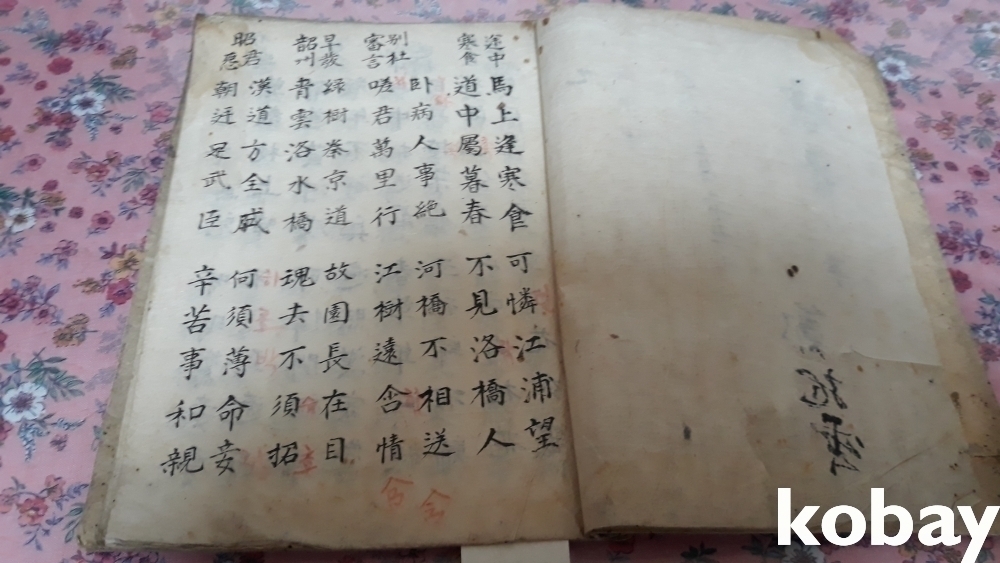 途中
寒食
馬上逢寒食 可憐江浦望
道中屬暮春 不見洛橋人
別杜
審言
臥病人事絶 河橋不相送
嗟君萬里行 江樹遠含情
早發
韶州
綠樹秦京道 故園長在目
青雲洛水橋 魂去不須招
昭君
怨
漢道方全盛 何須薄命妾
朝廷足武臣 辛苦事和親
kobay